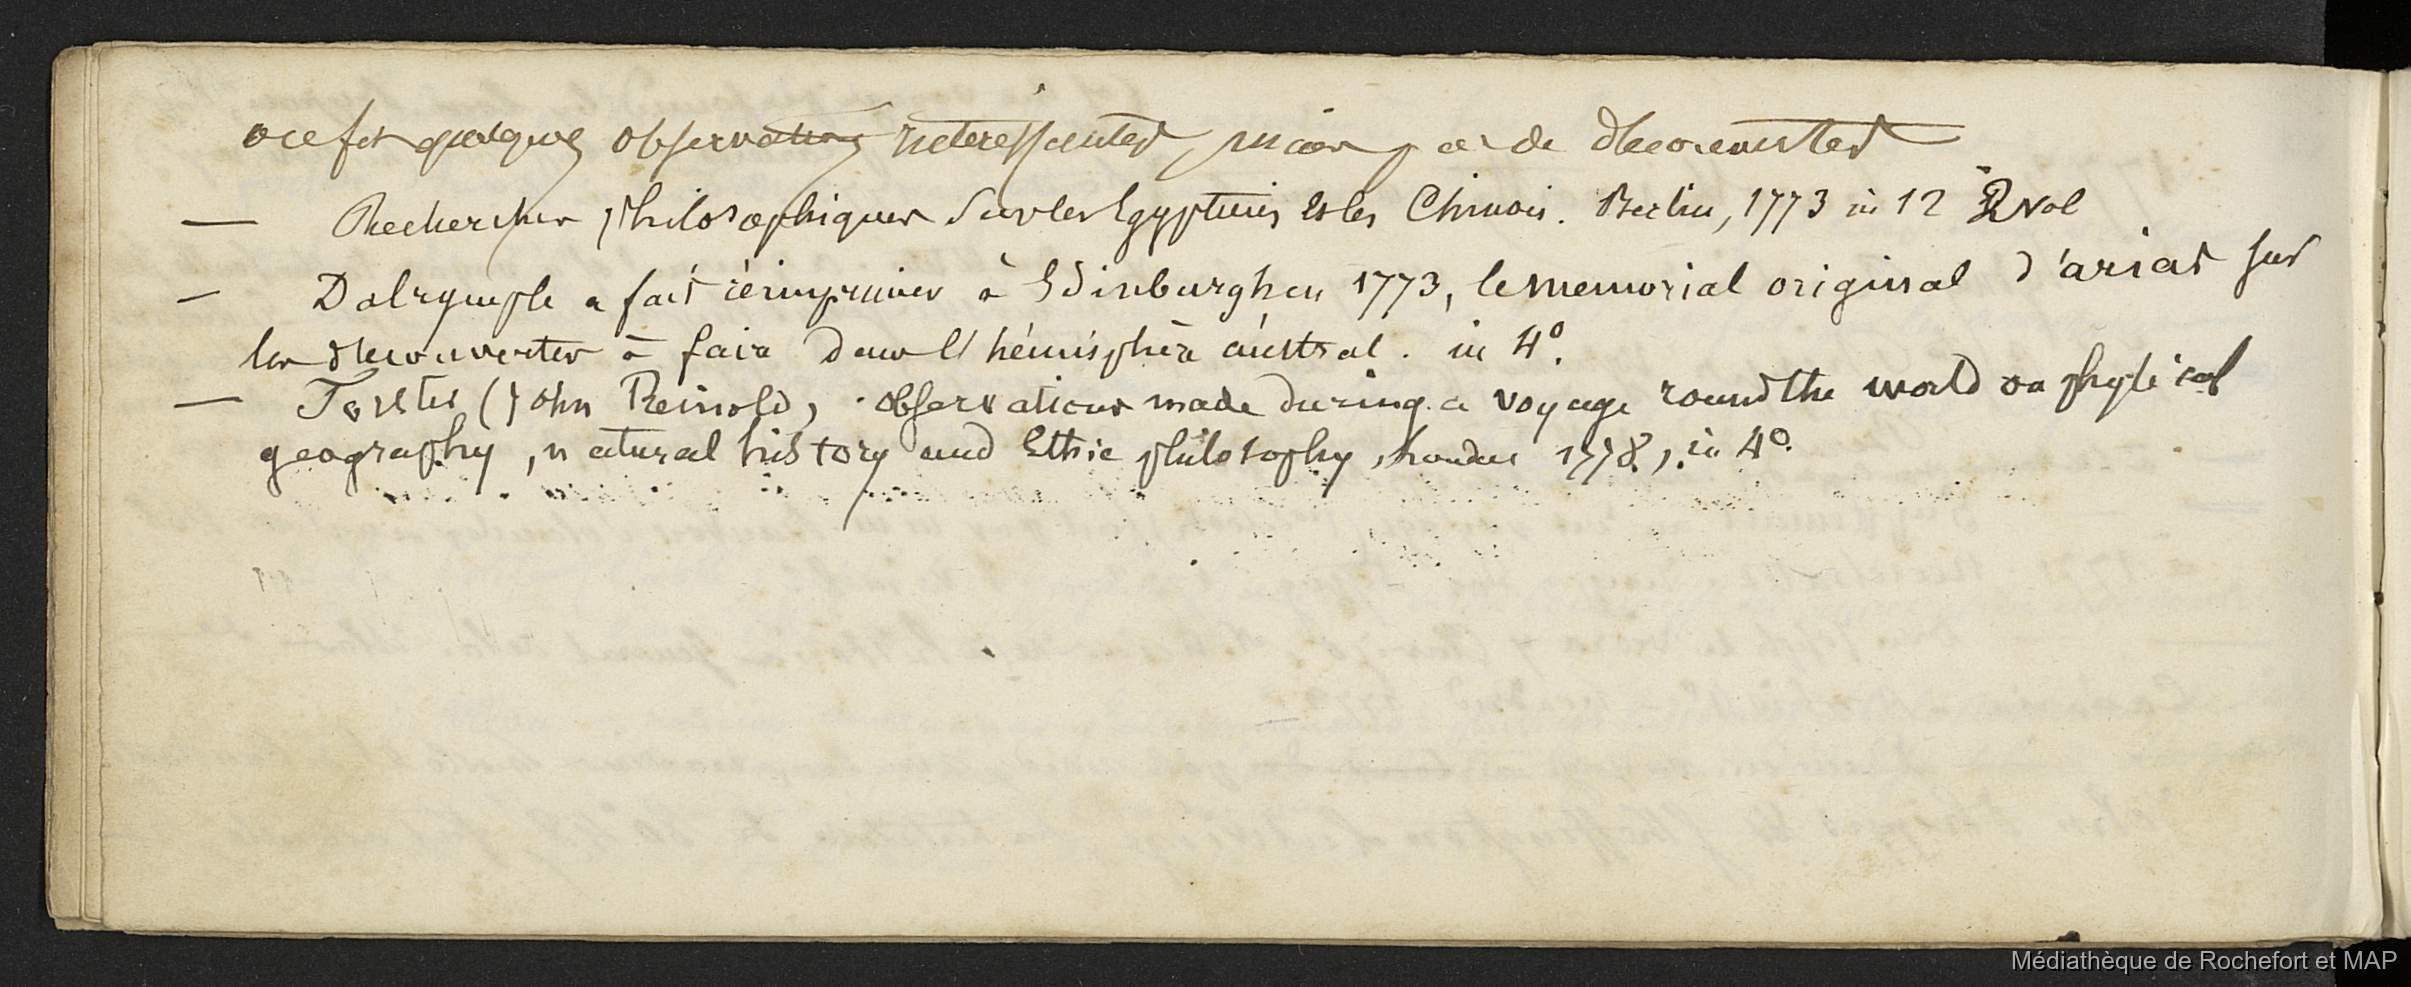 on fit quelques observations interessantes, mais pas de decouvertes
— Recherches philosophiques sur les Egyptiens et les Chinois. Berlin, 1773 in 12 2 vol
— Dalrymple a fait réimprimer à Edinburgh en 1773, le memorial original d'arias sur
les decouvertes à faire dans l'hémisphère austral. in 4°.
— Forster (John Reinold, observations made during a voyage round the world on physical
geography, natural history and Ethic philosophy, London 1778, in 4°.
Médiathèque de Rochefort et MAP